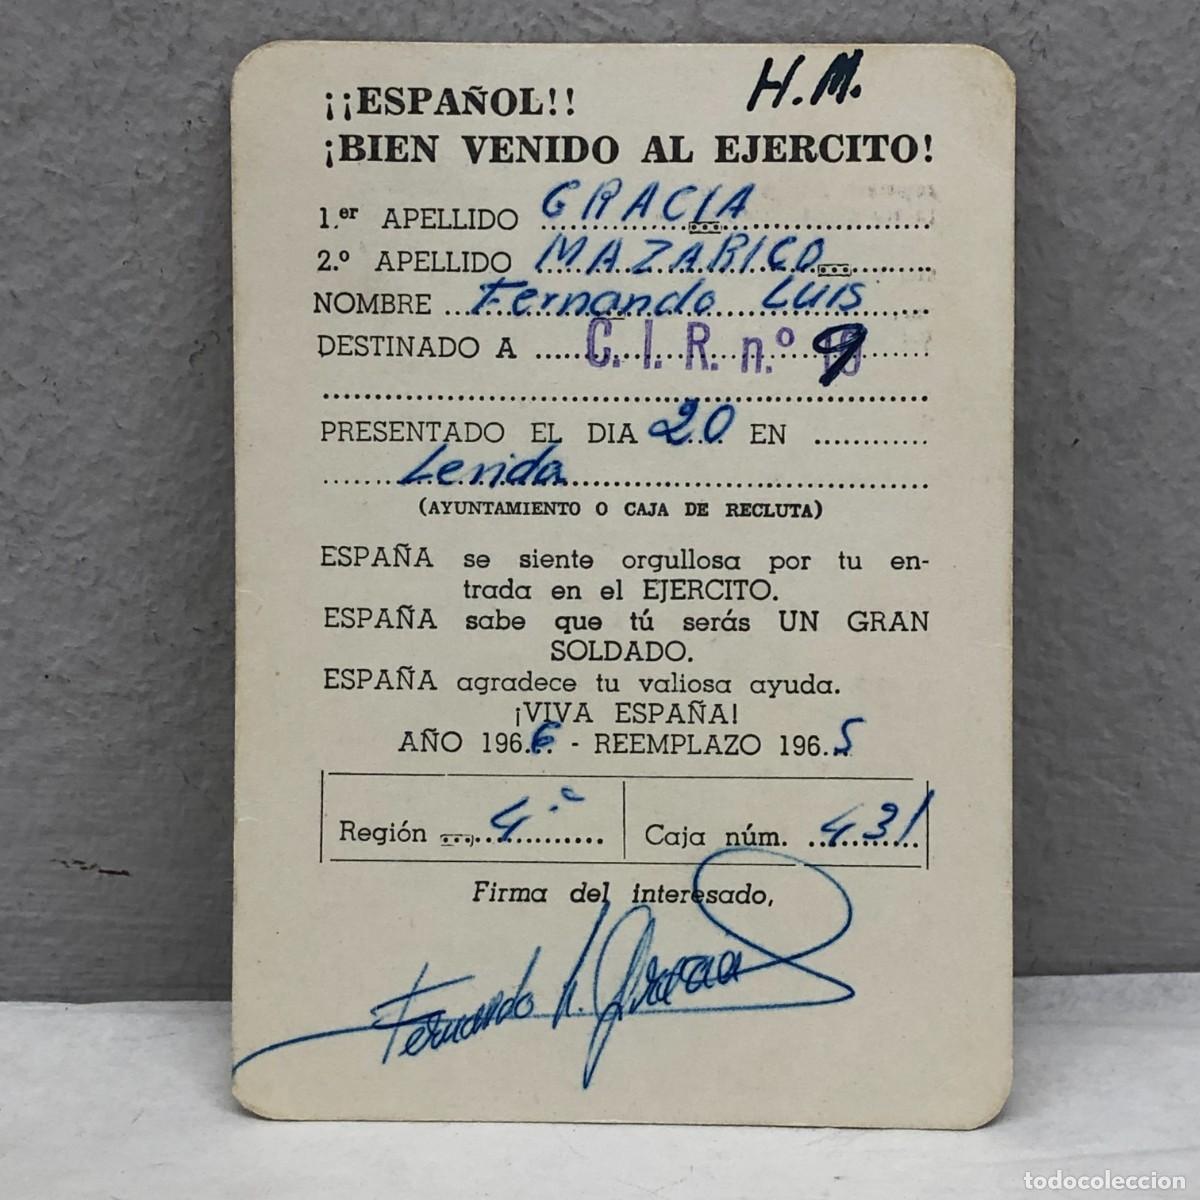 H.M.
¡¡ESPAÑOL!!
¡BIEN VENIDO AL EJERCITO!
1.er APELLIDO GRACIA
2.º APELLIDO MAZARICO
NOMBRE Fernando Luis
DESTINADO A C. I. R. n.º 9
PRESENTADO EL DIA 20 EN
Lerida
(AYUNTAMIENTO O CAJA DE RECLUTA)
ESPAÑA se siente orgullosa por tu en-
trada en el EJERCITO.
ESPAÑA sabe que tú serás UN GRAN
SOLDADO.
ESPAÑA agradece tu valiosa ayuda.
¡VIVA ESPAÑA!
AÑO 1966. - REEMPLAZO 196.5
Región 4ª Caja núm. 431
Firma del interesado,
Fernando L. Gracia
todocoleccion